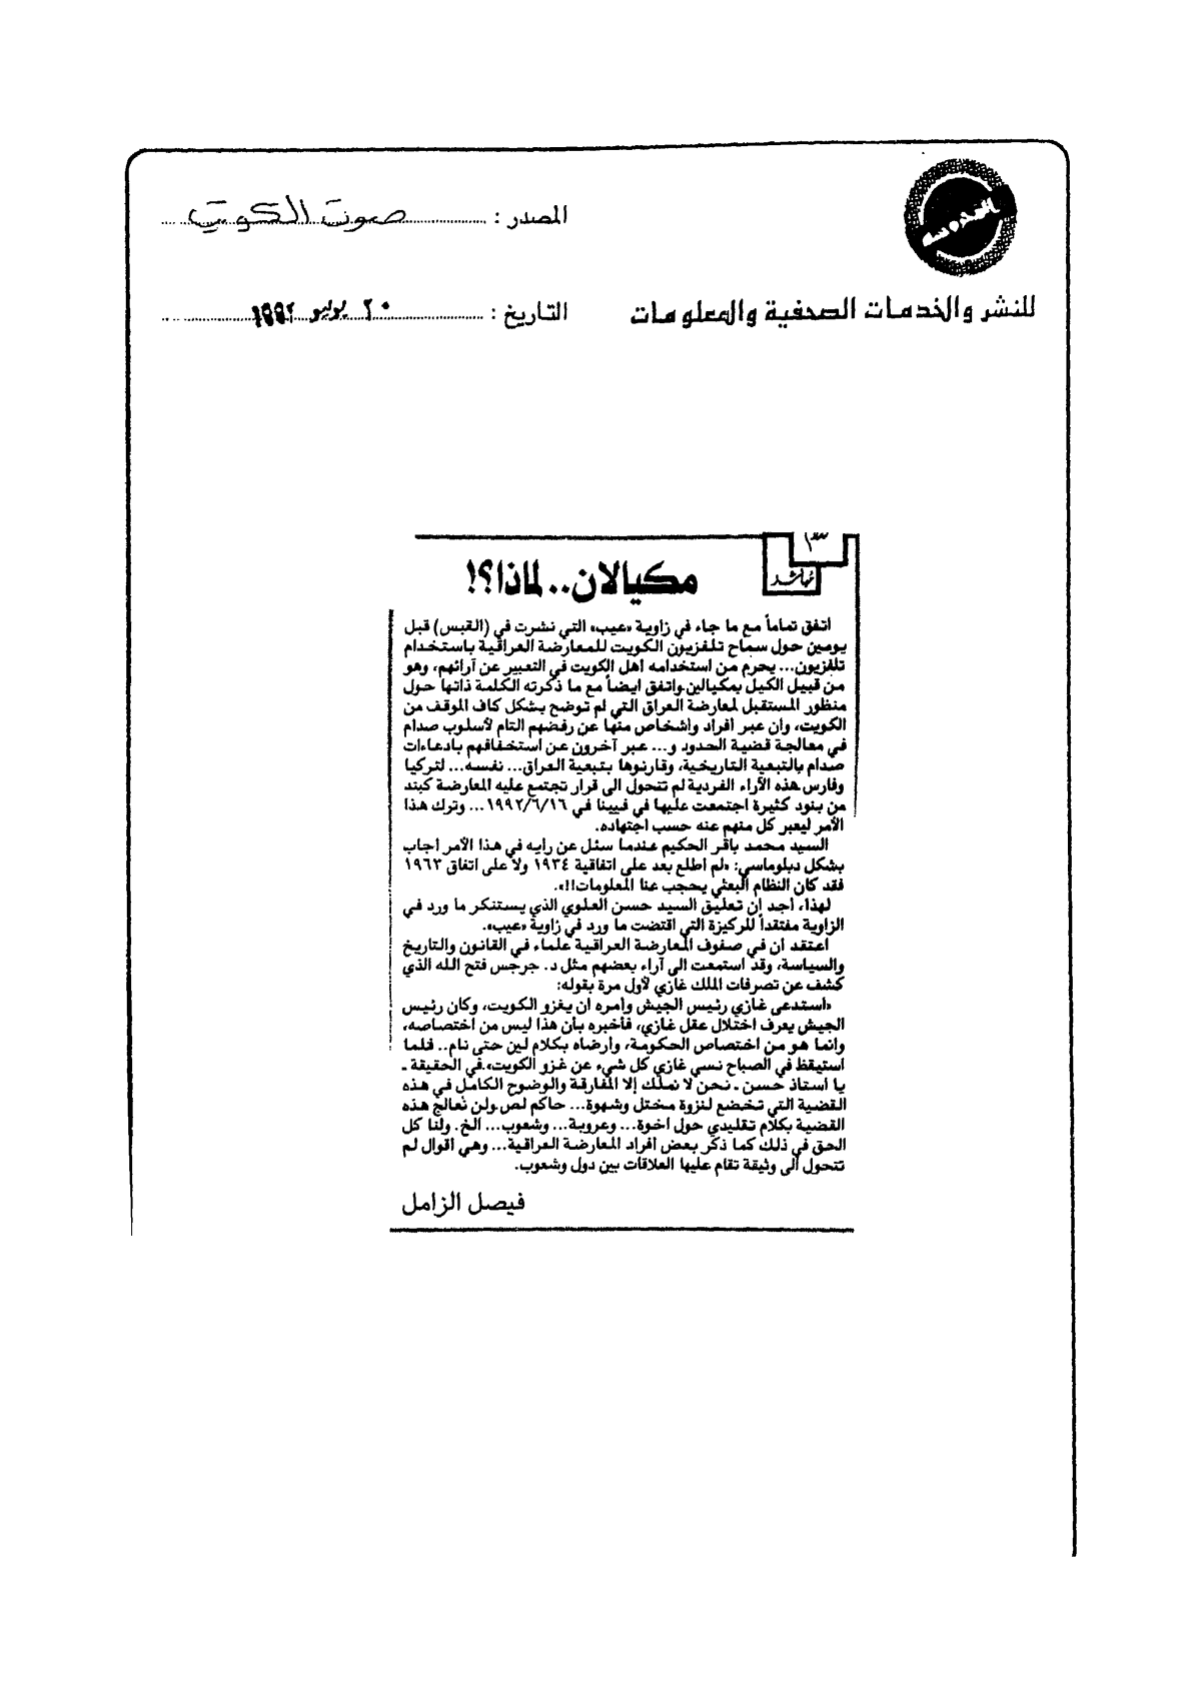 المحروسة
المصدر : صوت الكويت
للنشر والخدمات الصحفية والمعلومات
التاريخ : ٢٠ يوليو ١٩٩٢
مكيالان.. لماذا؟!
اتفق تماماً مع ما جاء في زاوية «عيب» التي نشرت في (القبس) قبل
يومين حول سماح تلفزيون الكويت للمعارضة العراقية باستخدام
تلفزيون... يحرم من استخدامه اهل الكويت في التعبير عن آرائهم، وهو
من قبيل الكيل بمكيالين.واتفق ايضاً مع ما ذكرته الكلمة ذاتها حول
منظور المستقبل لمعارضة العراق التي لم توضح بشكل كاف الموقف من
الكويت، وان عبر افراد واشخاص منها عن رفضهم التام لأسلوب صدام
في معالجة قضية الحدود و... عبر آخرون عن استخفافهم بادعاءات
صدام بالتبعية التاريخية، وقارنوها بتبعية العراق... نفسه... لتركيا
وفارس.هذه الآراء الفردية لم تتحول الى قرار تجتمع عليه المعارضة كبند
من بنود كثيرة اجتمعت عليها في فيينا في ١٩٩٢/٦/١٦... وترك هذا
الأمر ليعبر كل منهم عنه حسب اجتهاده.
السيد محمد باقر الحكيم عندما سئل عن رايه في هذا الأمر اجاب
بشكل دبلوماسي: «لم اطلع بعد على اتفاقية ١٩٣٤ ولا على اتفاق ١٩٦٣
فقد كان النظام البعثي يحجب عنا المعلومات!!».
لهذا، اجد ان تعليق السيد حسن العلوي الذي يستنكر ما ورد في
الزاوية مفتقداً للركيزة التي اقتضت ما ورد في زاوية «عيب».
اعتقد ان في صفوف المعارضة العراقية علماء في القانون والتاريخ
والسياسة، وقد استمعت الى آراء بعضهم مثل د. جرجس فتح الله الذي
كشف عن تصرفات الملك غازي لأول مرة بقوله:
«استدعى غازي رئيس الجيش وامره ان يغزو الكويت، وكان رئيس
الجيش يعرف اختلال عقل غازي، فأخبره بأن هذا ليس من اختصاصه،
وانما هو من اختصاص الحكومة، وارضاه بكلام لين حتى نام.. فلما
استيقظ في الصباح نسي غازي كل شيء عن غزو الكويت».في الحقيقة ـ
يا استاذ حسن ـ نحن لا نملك إلا المفارقة والوضوح الكامل في هذه
القضية التي تخضع لنزوة مختل وشهوة... حاكم لص.ولن نعالج هذه
القضية بكلام تقليدي حول اخوة... وعروبة... وشعوب... الخ. ولنا كل
الحق في ذلك كما ذكر بعض افراد المعارضة العراقية... وهي اقوال لم
تتحول الى وثيقة تقام عليها العلاقات بين دول وشعوب.
فيصل الزامل